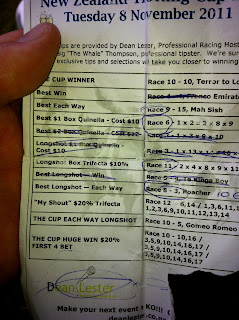 New Zealand Trotting Cup
Tuesday 8 November 2011
tips are provided by Dean Lester, Professional Racing Host
"The Whale" Thompson, professional tipster. We're su
exclusive tips and selections will take you closer to winning
THE CUP WINNER Race 10 - 10, Terror to Lo
Best Win Race
Best Each Way Race 9 - 15, Mah Sish
Best $1 Box Quinella - Cost $10 Race 6 - 1 x 2 x 8 x 9
Best $2 Box Quinella - Cost $12
Longshot $1 Box Quinella -
Cost $10 Race 3 - 1 x 13 x
Longshot Box Trifecta $10% Race 11 - 2 x 4 x 8 x 9 x 11
Best Longshot - Win
Best Longshot - Each Way Race 8 - 3, Poacher
"My Shout" $20% Trifecta Race 12 6,14 / 1,3,6,11,
1,2,3,6,9,10,11,12,13,14
THE CUP EACH WAY LONGSHOT Race 10 - 5, Gomeo Romeo
THE CUP HUGE WIN $20%
FIRST 4 BET Race 10 - 10,16 /
3,5,9,10,14,16,17 /
3,5,9,10,14,16,17 /
3,5,9,10,14,16,17
Dean Lester
Make your next event a KO!!!
deanlester.co.nz